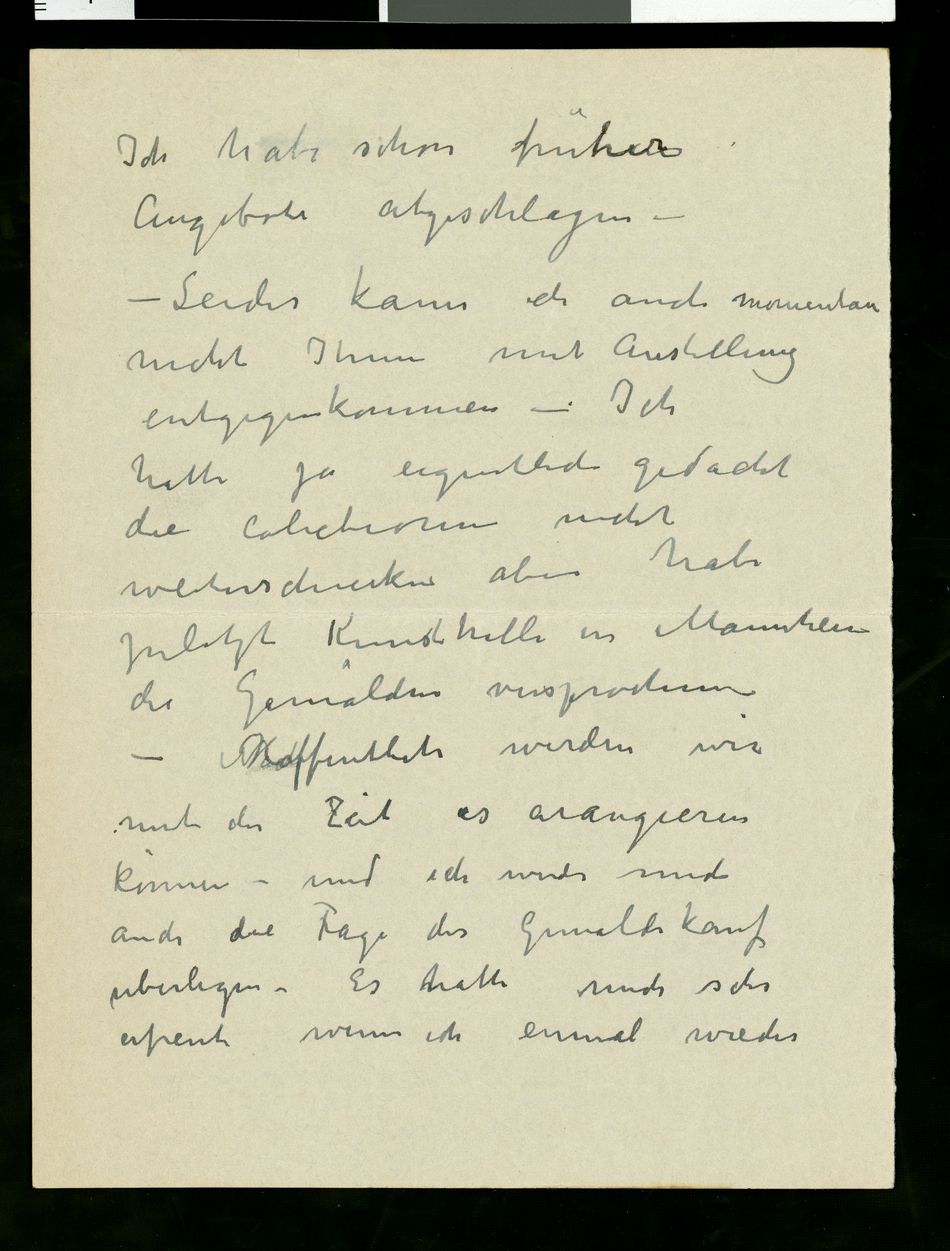 Ich habe schon früher
Angebote abgeschlagen –
– Leider kann ich auch momentan
nicht Ihnen mit Austellung
entgegenkommen –. Ich
hatte ja eigentlich gedacht
die Colectionen nicht
weiterschicken aber habe
zuletzt Kunsthalle in Mannheim
die Gemälden versprochen
– Hoffentlich werden wir
mit der Zeit es arangieren
können – und ich werde mich
auch die Frage des Gemäldekauf
überlegen – Es hatte mich sehr
erfreut wenn ich einmal wieder